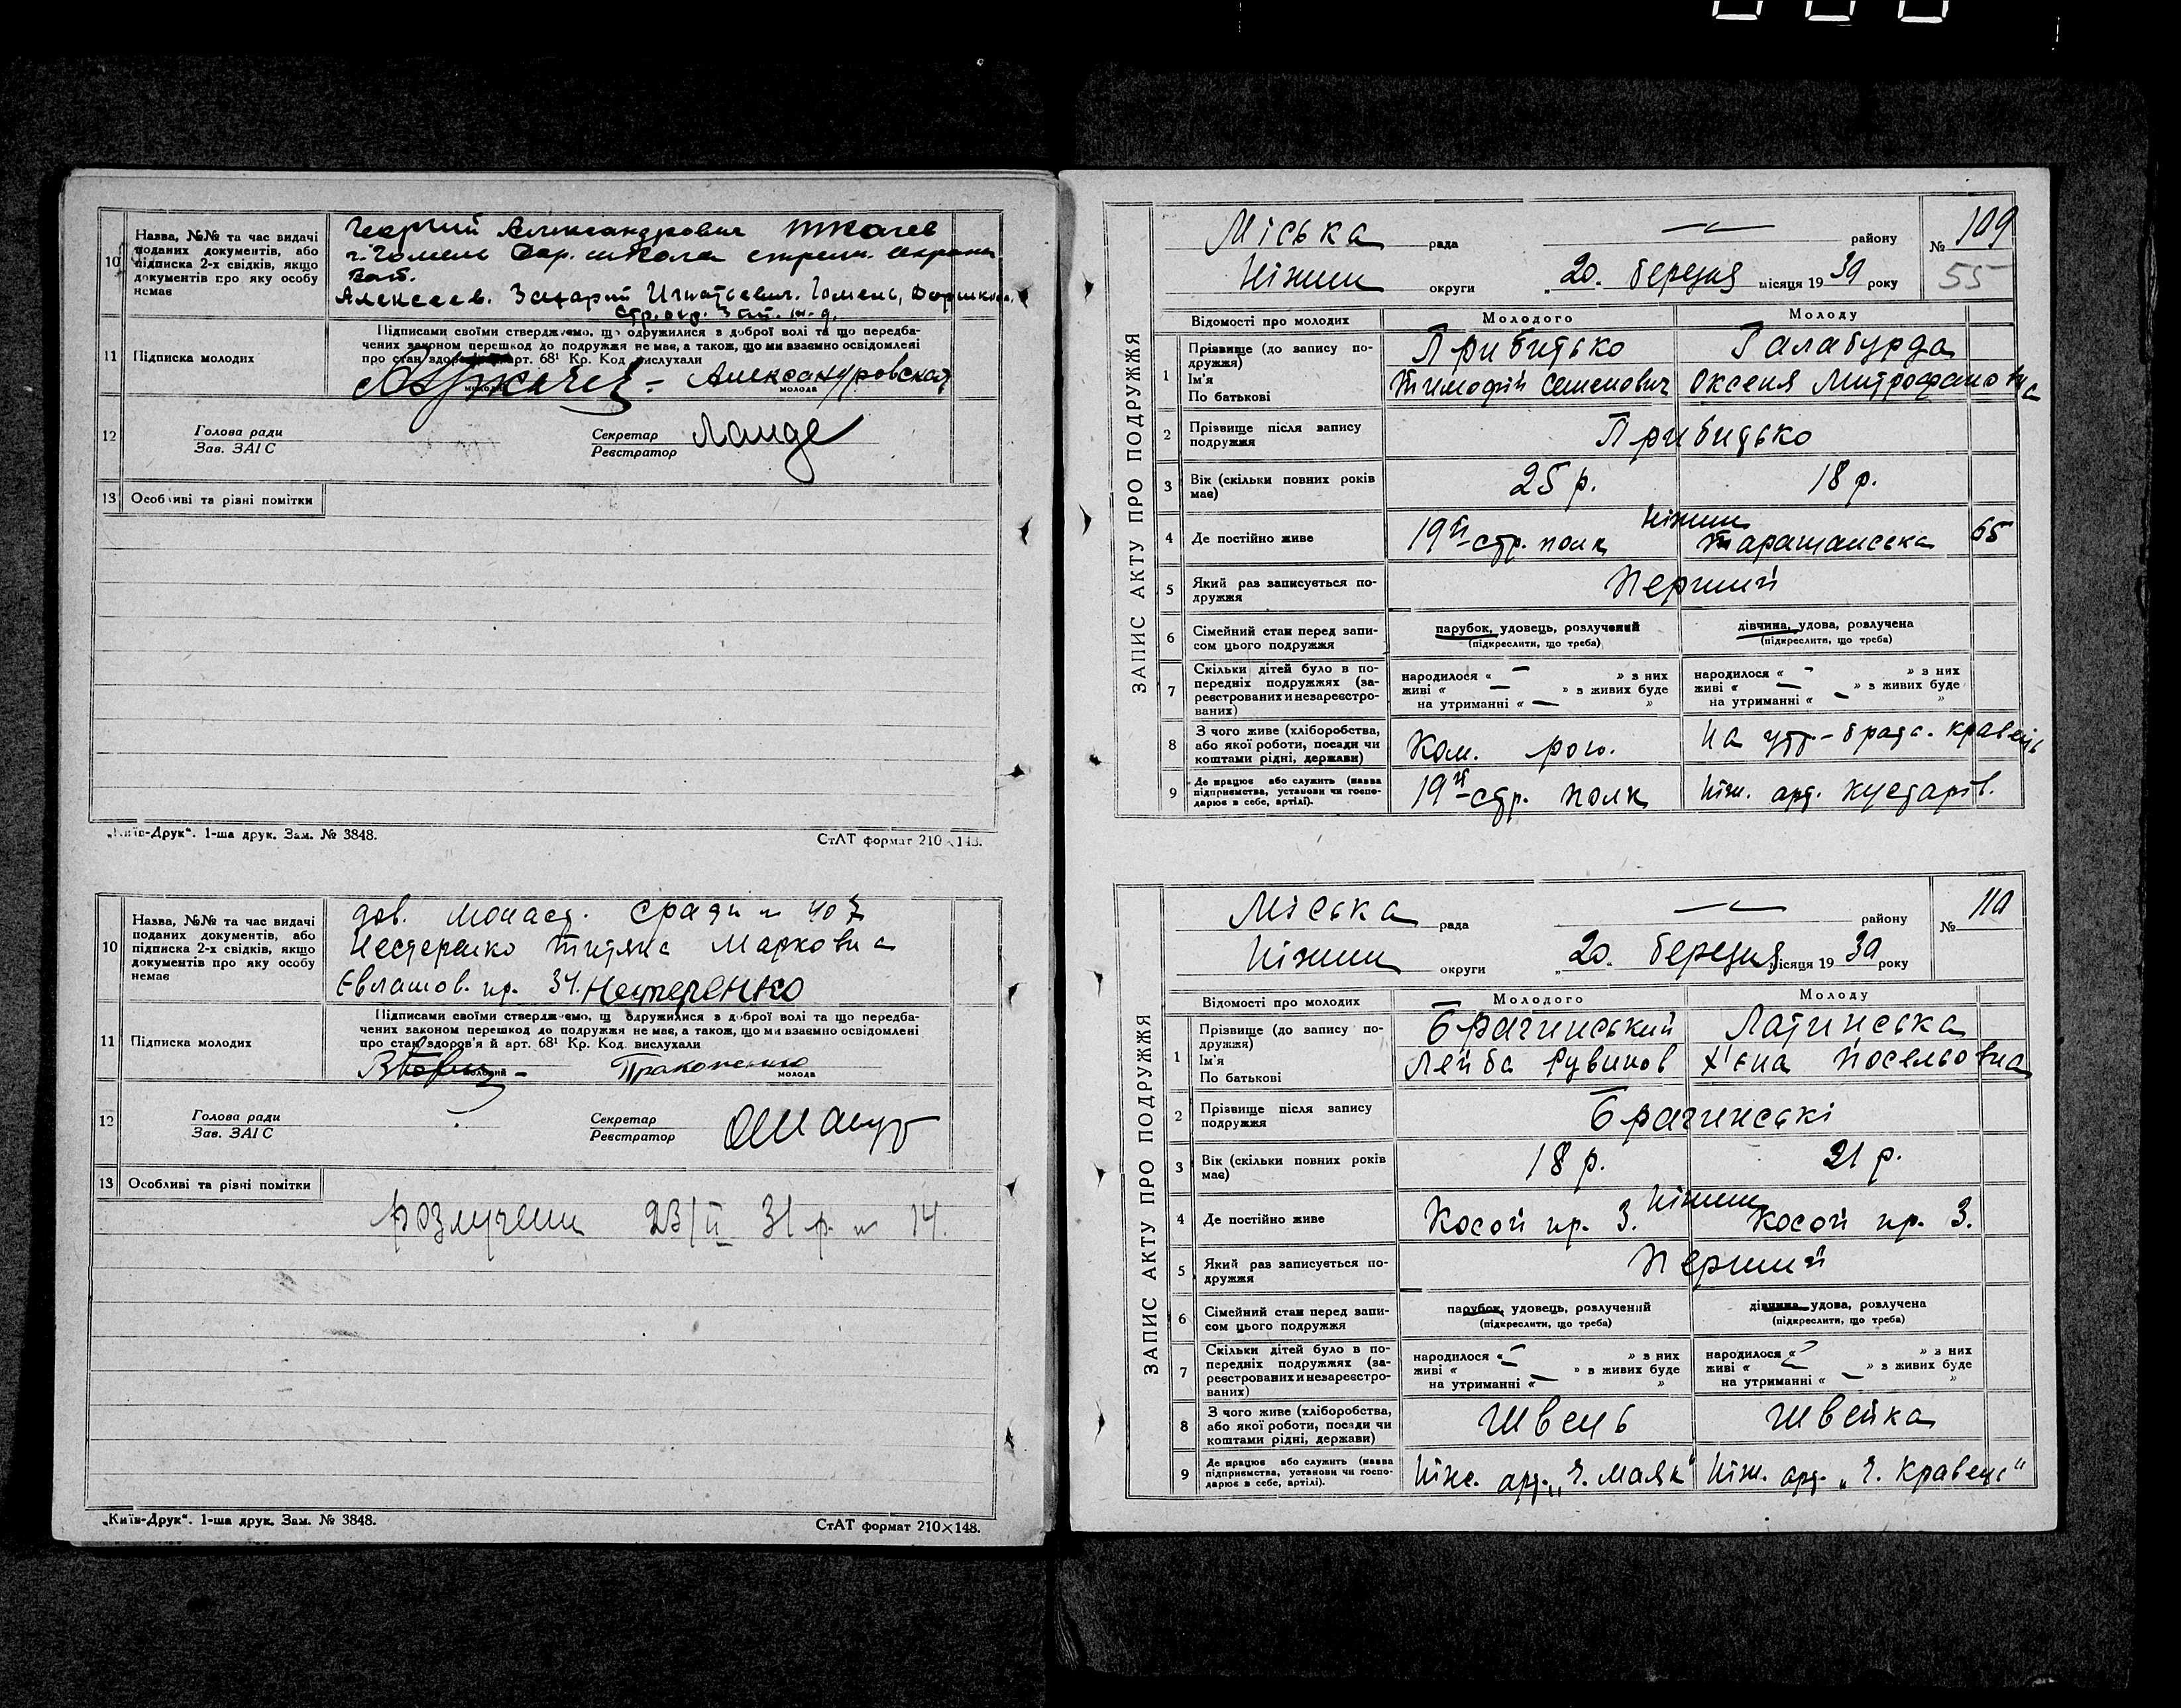 10 Назва, №№ та час видачі
поданих документів, або
підписка 2-х свідків, якщо
документів про яку особу
немає
Георгий Александрович Ткачев
г. Гомель Дор. школа стрелк. охраны
Зап.
Алексеев. Захарий Игнатьевич. Гомель,
стр. охр. Зап. ж. д.
11 Підписка молодих
Підписами своїми стверджуємо, що одружилися з доброї волі та що передба-
чених законом перешкод до подружжя не має, а також, що ми взаємно освідомлені
про стан здоров'я й арт. 68¹ Кр. Код вислухали
Александровская
молодий молода
12 Голова ради
Зав. ЗАІС
Секретар
Реєстратор
Ланде
13 Особливі та різні помітки
„Київ-Друк“. 1-ша друк. Зам. № 3848. СтАТ формат 210×148.
10 Назва, №№ та час видачі
поданих документів, або
підписка 2-х свідків, якщо
документів про яку особу
немає
дов. Монаст. сради № 407
Нестеренко Титяна Марковна
Євлашов. пр. 34. Нестеренко
11 Підписка молодих
Підписами своїми стверджуємо, що одружилися з доброї волі та що передба-
чених законом перешкод до подружжя не має, а також, що ми взаємно освідомлені
про стан здоров'я й арт. 68¹ Кр. Код. вислухали
Пракопенко
молодий молода
12 Голова ради
Зав. ЗАІС
Секретар
Реєстратор
13 Особливі та різні помітки
розлучени 23/II 31 р. № 14.
„Київ-Друк“. 1-ша друк. Зам. № 3848. СтАТ формат 210×148.
ЗАПИС АКТУ ПРО ПОДРУЖЖЯ
Міська рада району № 109
Ніжин округи „20. березня місяця 1930 року 55
Відомості про молодих Молодого Молоду
1 Прізвище (до запису по-
дружжя)
Ім'я
По батькові
Прибитько Галабурда
Тимофій Семенович Оксеня Митрофановна
2 Прізвище після запису
подружжя
Прибитько
3 Вік (скільки повних років
має)
25 р. 18 р.
4 Де постійно живе
Ніжин
19й стр. полк Таращанська 65
5 Який раз записується по-
дружжя
Перший
6 Сімейний стан перед запи-
сом цього подружжя
парубок, удовець, розлучений
(підкреслити, що треба)
дівчина, удова, розлучена
(підкреслити, що треба)
7 Скільки дітей було в по-
передніх подружжях (за-
реєстрованих и незареєстро-
ваних)
народилося « – » з них
живі « – » з живих буде
на утриманні « – »
народилося « – » з них
живі « – » з живих буде
на утриманні « – »
8 З чого живе (хліборобства,
або якої роботи, посади чи
коштами рідні, держави)
Ком. рот. На утр. – брата. кравець
9 Де працює або служить (назва
підприємства, установи чи госпо-
дарює в себе, артілі).
19й стр. полк Ніж. арт. кустарів.
ЗАПИС АКТУ ПРО ПОДРУЖЖЯ
Міська рада району № 110
Ніжин округи „20. березня місяця 1930 року
Відомості про молодих Молодого Молоду
1 Прізвище (до запису по-
дружжя)
Ім'я
По батькові
Брагинський Латинська
Лейба Рувинов Х'єна Йосельовна
2 Прізвище після запису
подружжя
Брагинські
3 Вік (скільки повних років
має)
18 р. 21 р.
4 Де постійно живе
Ніжин
Косой пр. 3. Косой пр. 3.
5 Який раз записується по-
дружжя
Перший
6 Сімейний стан перед запи-
сом цього подружжя
парубок, удовець, розлучений
(підкреслити, що треба)
дівчина, удова, розлучена
(підкреслити, що треба)
7 Скільки дітей було в по-
передніх подружжях (за-
реєстрованих и незареєстро-
ваних)
народилося « – » з них
живі « » з живих буде
на утриманні « – »
народилося « – » з них
живі « – » з живих буде
на утриманні « – »
8 З чого живе (хліборобства,
або якої роботи, посади чи
коштами рідні, держави)
Швець Швейка
9 Де працює або служить (назва
підприємства, установи чи госпо-
дарює в себе, артілі).
Ніж. арт. „Ч. Маяк“ Ніж. арт. „Ч. Кравець“